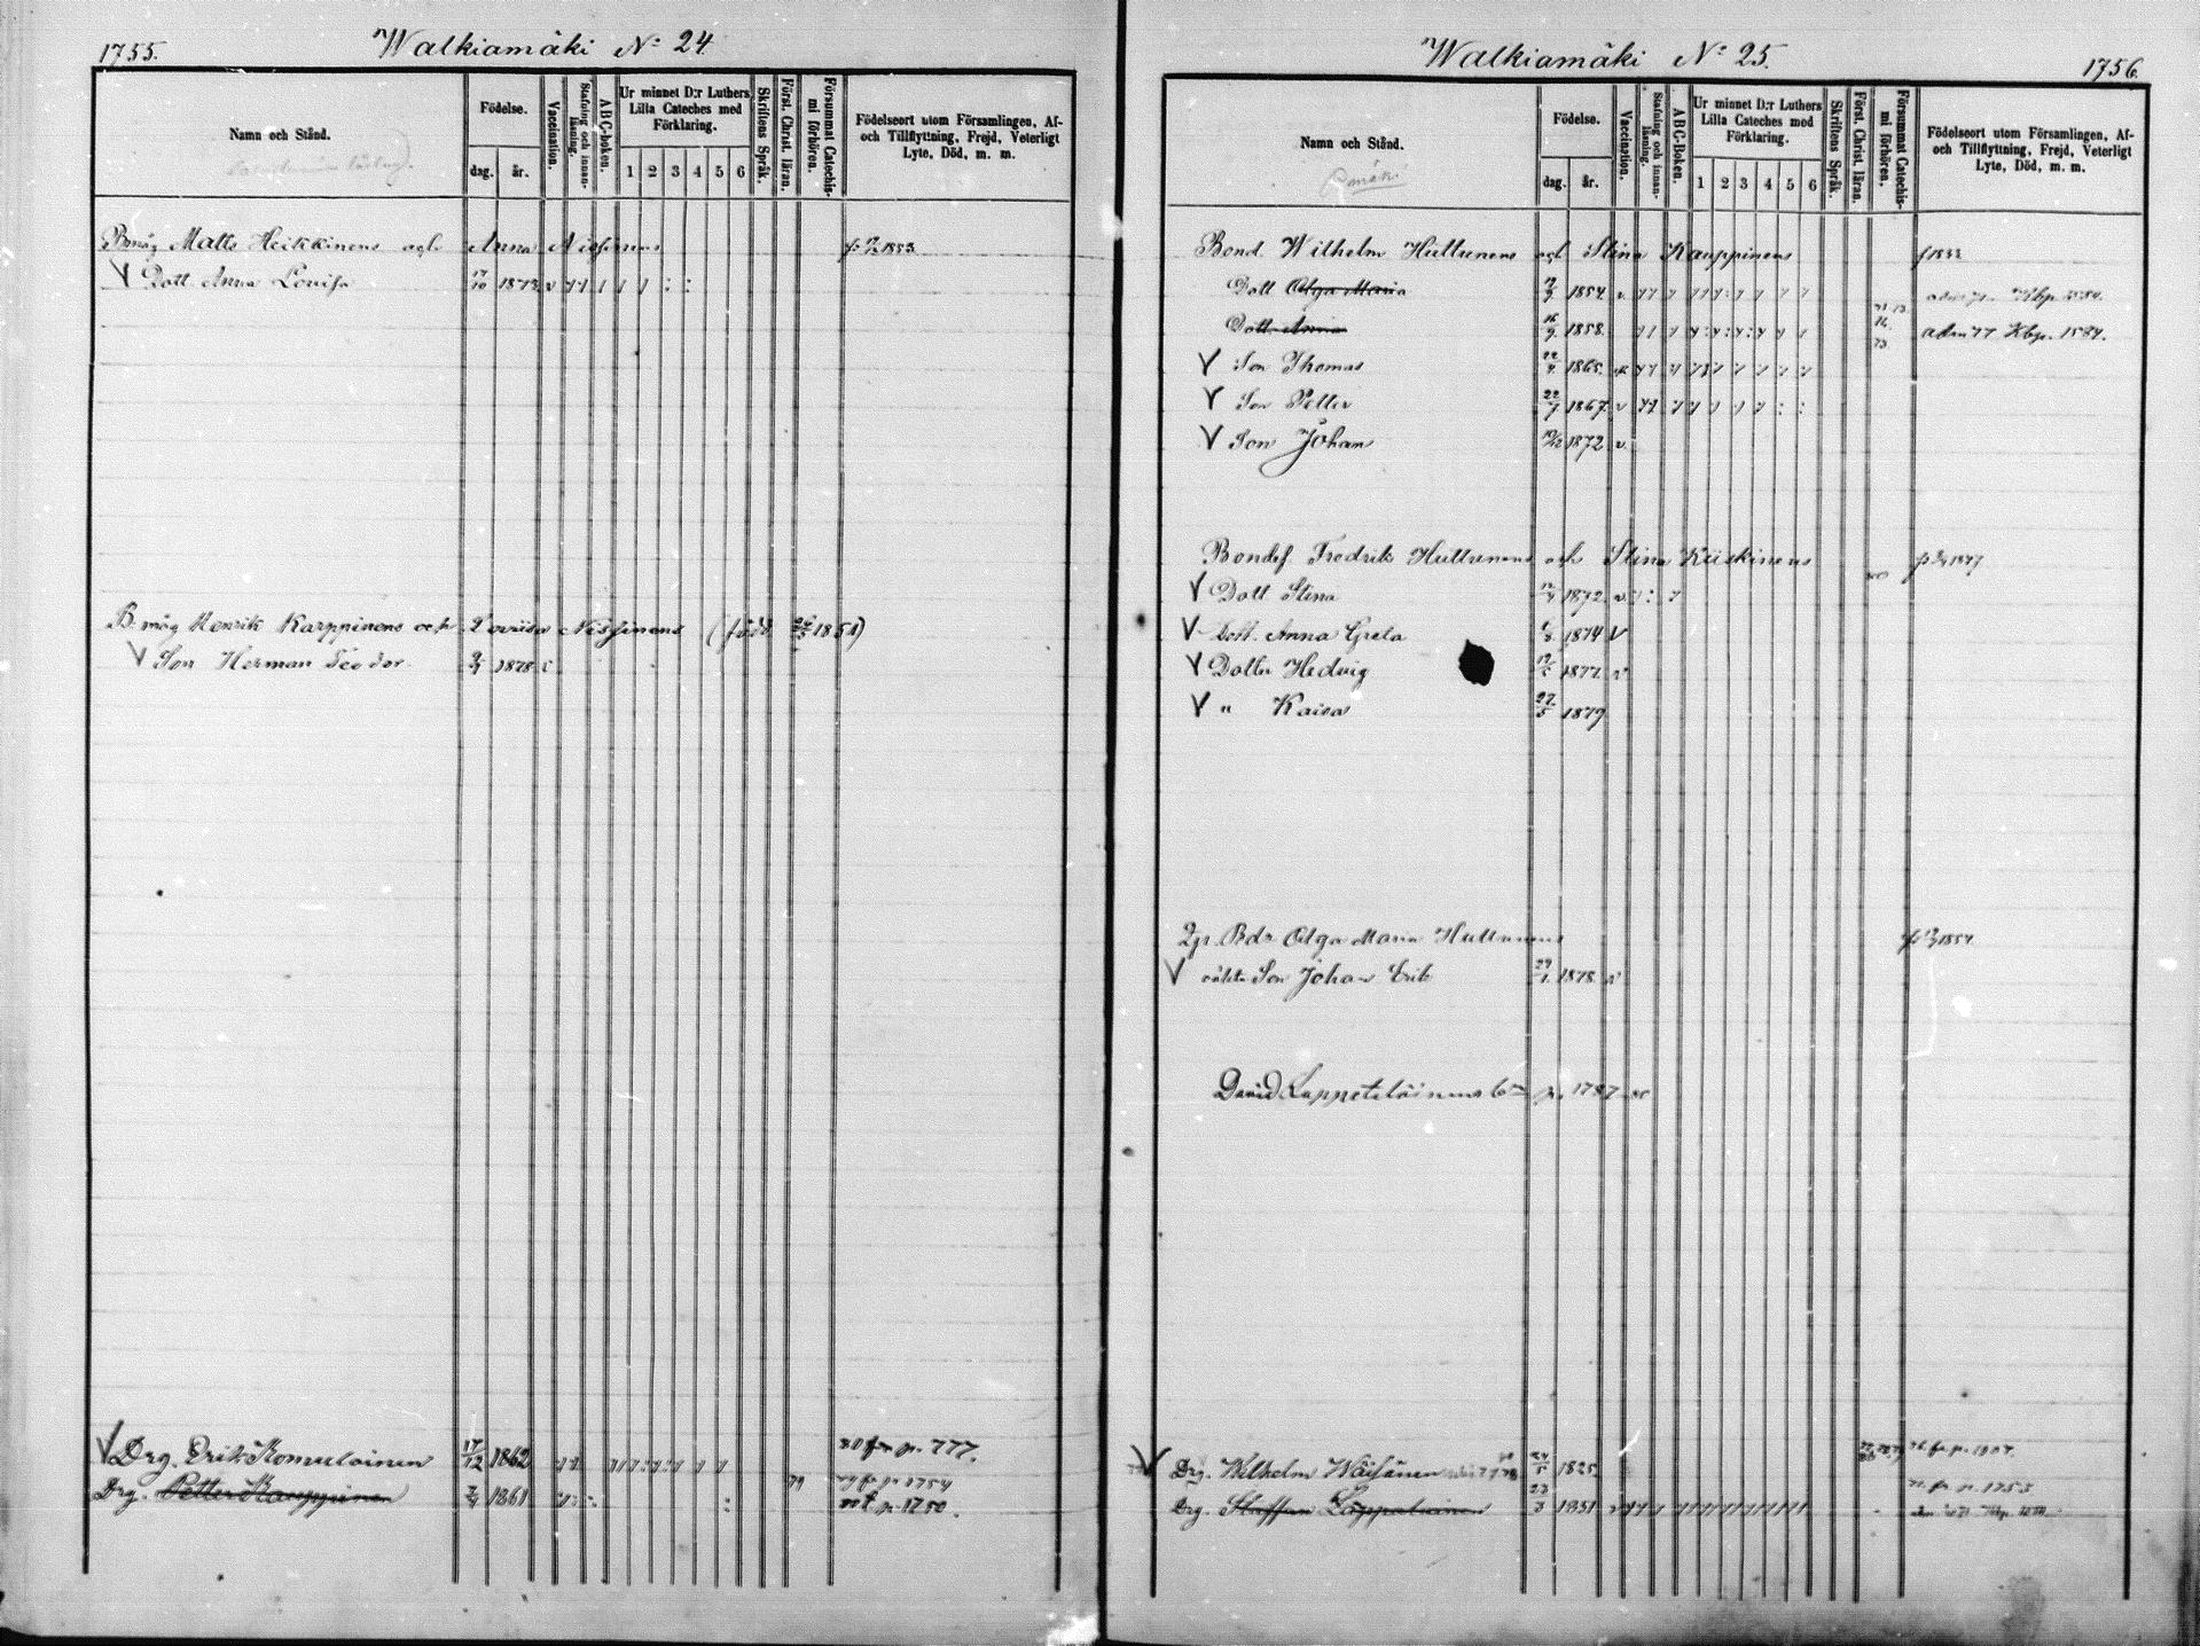 1755.
Walkiamäki No 24.
Namn och Stånd.
Födelse.
dag. år.
Vaccination.
Stafning och innan-läsning.
ABC-boken.
Ur minnet D:r Luthers Lilla Cateches med Förklaring.
1 2 3 4 5 6
Skriftens Språk.
Först. Christ. läran.
Försummat Catechis-mi förhören.
Födelseort utom Församlingen, Af- och Tillflyttning, Frejd, Veterligt Lyte, Död, m. m.
Bmåg Matts Heikkinens och Anna Nissinens 1853
V Dott Anna Lovisa 17/10 1873 v
B. måg Henrik Karppinens och Lovisa Nissinens (född 1851)
V Son Herman Teodor 1878
V Drg. Erik Komulainen 17/12 1862 p. 777.
Drg. Petter Kauppinen 1861 79 p. 1754
p. 1750.
Walkiamäki No 25.
1756.
Namn och Stånd.
Födelse.
dag. år.
Vaccination.
Stafning och innan-läsning.
ABC-Boken.
Ur minnet D:r Luthers Lilla Cateches med Förklaring.
1 2 3 4 5 6
Skriftens Språk.
Först. Christ. läran.
Försummat Catechis-mi förhören.
Födelseort utom Församlingen, Af- och Tillflyttning, Frejd, Veterligt Lyte, Död, m. m.
Bond. Wilhelm Huttunens och Stina Kauppinens
Dott Olga Maria 1854 v
Dott Anna 16/9 1858. adm 77 Kbp. 1584.
V Son Thomas 1865.
V Son Petter 1867 v
V Son Johan 1872 v.
Bondes Fredrik Huttunens och Stina Kiiskinens 1847
V Dott Stina 1872 v
V Dott. Anna Greta 1874 V
V Dottr Hedvig 1877 v
V " Kaisa 27/5 1879
Bdr Olga Maria Huttunens 1854
V oäkta Son Johan Erik 1878 v
David Lappeteläinens 1787
V Drg. Wilhelm Wäisänen 24/5 1825
Drg. Staffan Lappalainen 23/3 1851 p. 1753